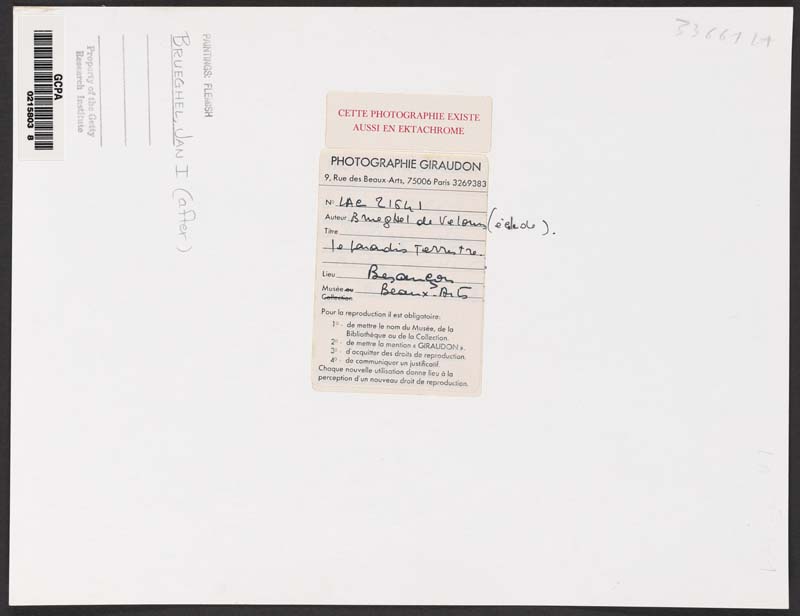 33661 LA
GCPA
0215803 8
Property of the Getty
Research Institute
PAINTINGS: FLEMISH
BRUEGHEL, JAN I (after)
CETTE PHOTOGRAPHIE EXISTE
AUSSI EN EKTACHROME
PHOTOGRAPHIE GIRAUDON
9, Rue des Beaux-Arts, 75006 Paris 3269383
N° LAC 21641
Auteur Brueghel de Velours (école de).
Titre
le Paradis Terrestre.
Lieu Besançon
Musée ou Beaux-Arts
Collection
Pour la reproduction il est obligatoire:
1° - de mettre le nom du Musée, de la
Bibliothèque ou de la Collection.
2° - de mettre la mention « GIRAUDON ».
3° - d'acquitter des droits de reproduction.
4° - de communiquer un justificatif.
Chaque nouvelle utilisation donne lieu à la
perception d'un nouveau droit de reproduction.